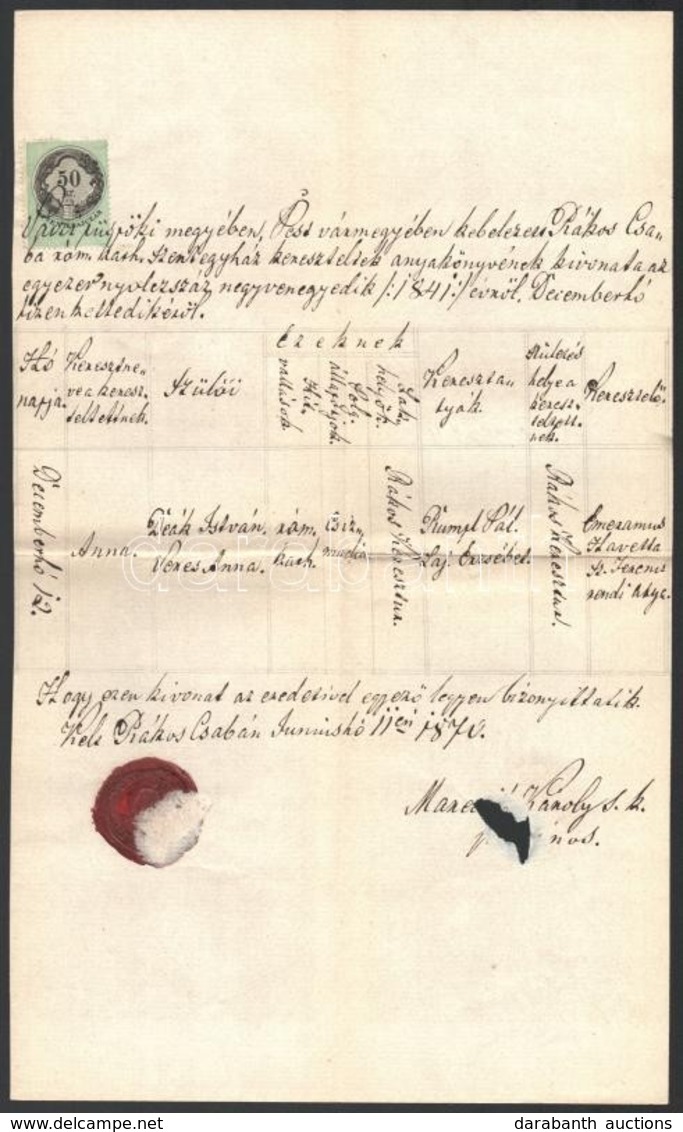 50
kr.
megyében, Pest vármegyében kebelezett Rákos Csa-
ba róm. kath. szentegyház kereszteltek anyakönyvének kivonata az
egyezer nyolczszáz negyvenegyedik /:1841:/ évről, Decemberhó
tizenkettedikéről.
Ezeknek
Hó
napja.
Keresztne-
ve a keresz-
teltettnek.
Szülői
Hit-
vallások
Polg.
állapotjok.
Lak-
helyök.
Kereszta-
tyák.
Születés
helye a
keresz-
teltett-
nek.
Keresztelő.
Decemberhó 12.
Anna.
Deák István.
Veres Anna.
róm.
kath.
Rákos Keresztur.
Rumpl Pál.
Laj. Erzsébet.
Rákos Keresztur.
Emeramus
Havetta
Sz. Ferencz
rendi atya.
Hogy ezen kivonat az eredetivel egyező legyen bizonyittatik.
Kelt Rákos Csabán Juniushó 11én 1870.
Károly s. k.
darabanth
darabanth auctions